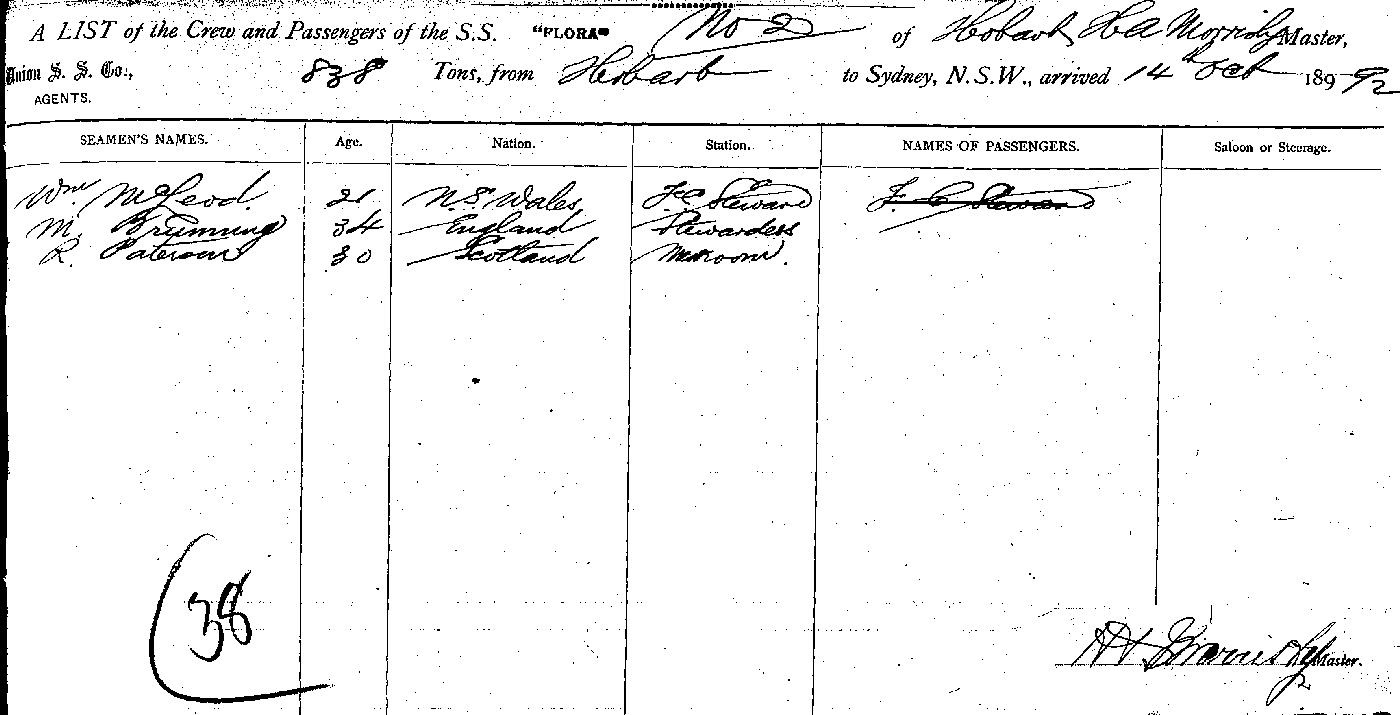 A LIST of the Crew and Passengers of the S.S. "FLORA" No 2 of Hobart, HA Master,
Union S. S. Co., 838 Tons, from Hobart to Sydney, N.S.W., arrived 14th Oct 189-92
AGENTS.
SEAMEN'S NAMES. Age. Nation. Station. NAMES OF PASSENGERS. Saloon or Steerage.
Wm McLeod. 21 N.S. Wales Steward F. C Steward
M. Brunning 34 England Stewardess
R. Paterson 30 Scotland
38
Master.